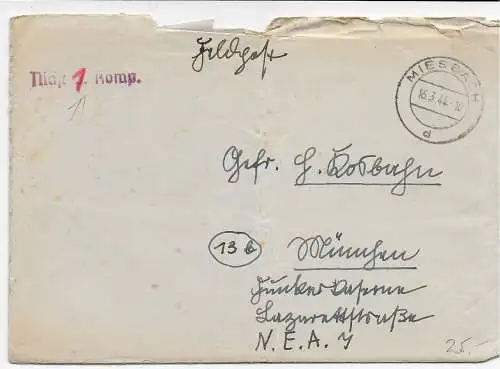 Feldpost
1 Komp.
MIESBACH
16.3.44
d
Gefr. H. Kosbahn
13b
München
Junker Kaserne
Lazarettstraße
N. E. A. 7
25.-